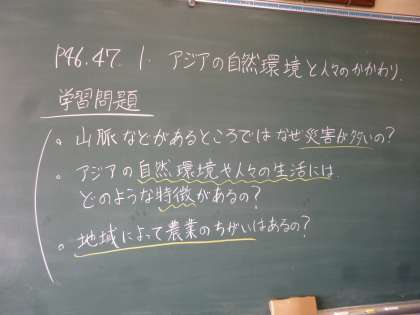 P46.47. 1. アジアの自然環境と人々のかかわり.
学習問題
・山脈などがあるところではなぜ災害が多いの?
・アジアの自然環境や人々の生活には
どのような特徴があるの?
・地域によって農業のちがいはあるの?